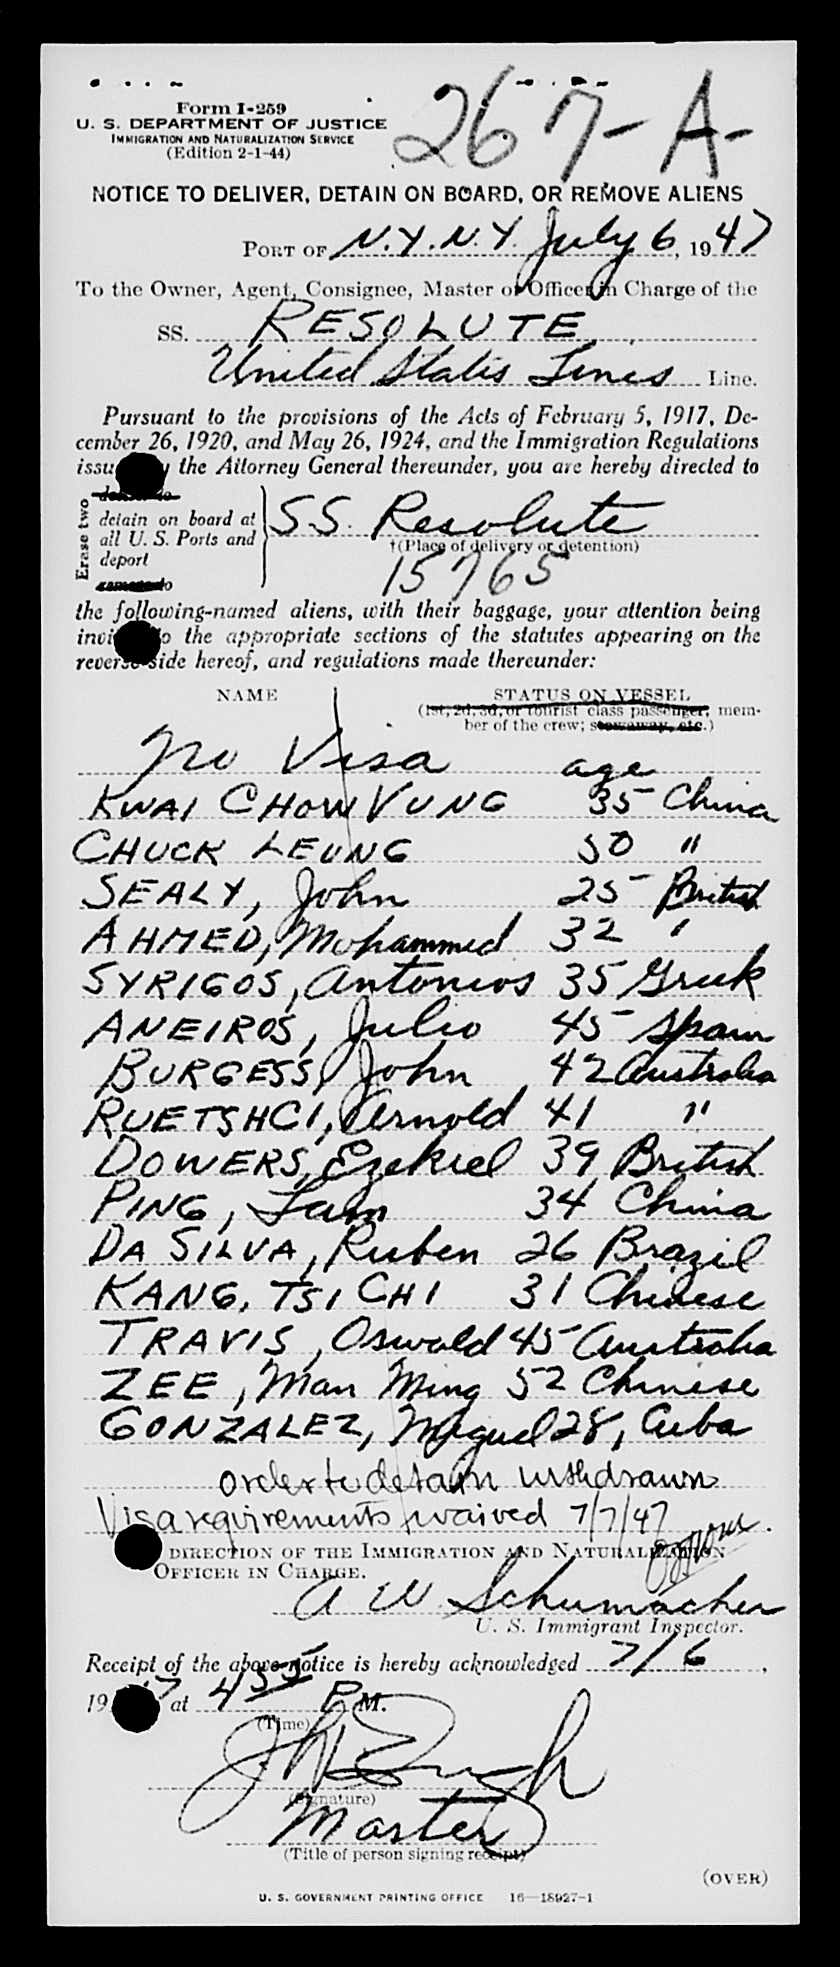 Form I-259
U. S. DEPARTMENT OF JUSTICE
IMMIGRATION AND NATURALIZATION SERVICE
(Edition 2-1-44)
267-A-
NOTICE TO DELIVER, DETAIN ON BOARD, OR REMOVE ALIENS
PORT OF N.Y. N.Y. July 6, 1947
To the Owner, Agent, Consignee, Master or Officer in Charge of the
SS. RESOLUTE
United States Lines Line.
Pursuant to the provisions of the Acts of February 5, 1917, De-
cember 26, 1920, and May 26, 1924, and the Immigration Regulations
issu y the Attorney General thereunder, you are hereby directed to
Erase two
deliver to
detain on board at
all U. S. Ports and
deport
remove to
SS. Resolute
†(Place of delivery or detention)
15765
the following-named aliens, with their baggage, your attention being
invi o the appropriate sections of the statutes appearing on the
reverse side hereof, and regulations made thereunder:
NAME STATUS ON VESSEL
(1st, 2d, 3d, or tourist class passenger, mem-
ber of the crew; stowaway, etc.)
No Visa age
KWAI CHOW VUNG 35 China
CHUCK LEUNG 50 "
SEALY, John 25 British
AHMED, Mohammed 32 "
SYRIGOS, Antonios 35 Greek
ANEIROS, Julio 45 Spain
BURGESS, John 42 Australia
RUETSHCI, Arnold 41 "
DOWERS, Ezekiel 39 British
PING, Lam 34 China
DA SILVA, Ruben 26 Brazil
KANG, TSI CHI 31 Chinese
TRAVIS, Oswald 45 Australia
ZEE, Man Ming 52 Chinese
GONZALEZ, Miguel 28, Cuba
order to detain withdrawn
Visa requirements waived 7/7/47
DIRECTION OF THE IMMIGRATION AND NATURALIZATION
OFFICER IN CHARGE.
A W Schumacher
U. S. Immigrant Inspector.
Receipt of the above notice is hereby acknowledged 7/6,
19 7 at 4 55 P.M.
(Time)
(Signature)
Master
(Title of person signing receipt)
(OVER)
U. S. GOVERNMENT PRINTING OFFICE 16—18927-1